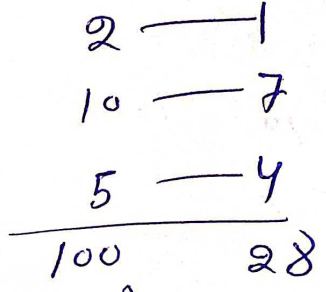 2 — 1
10 — 7
5 — 4
100 28